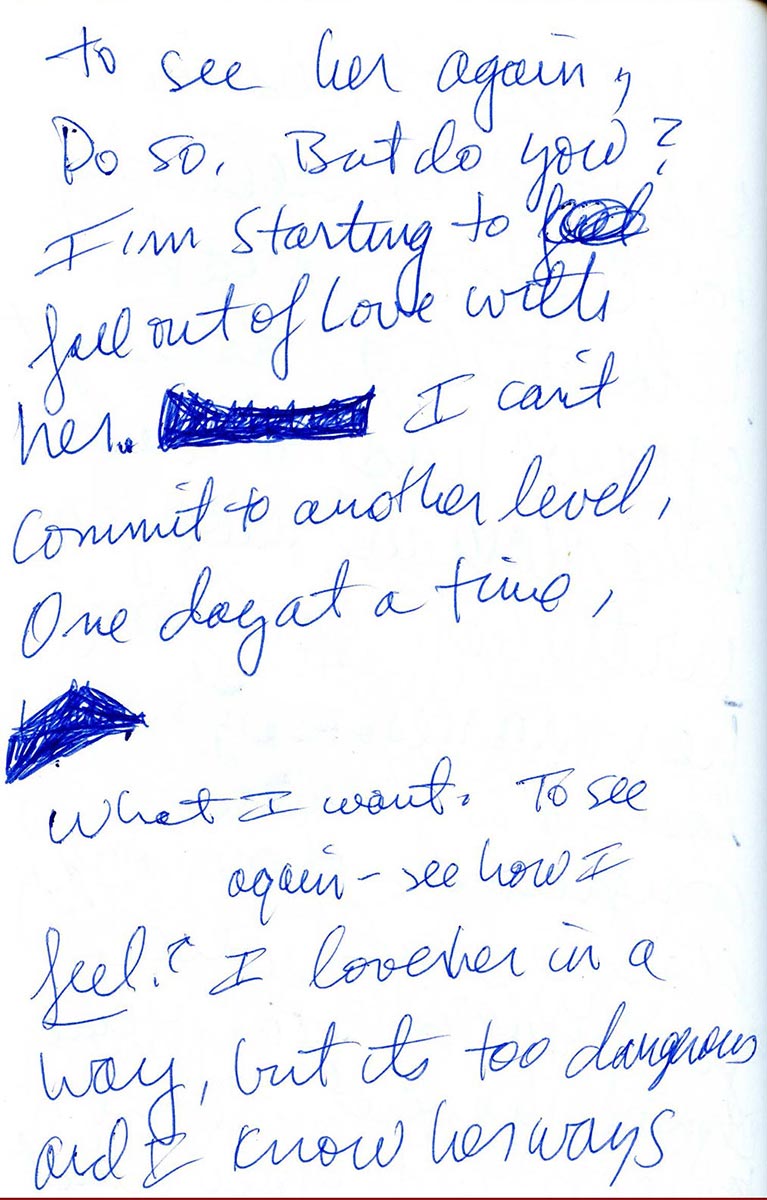 to see her again,
Do so. But do you?
I'm starting to
fall out of love with
her. I can't
commit to another level,
One day at a time,
What I want. To see
again - see how I
feel.? I love her in a
way, but its too dangerous
and I know her ways